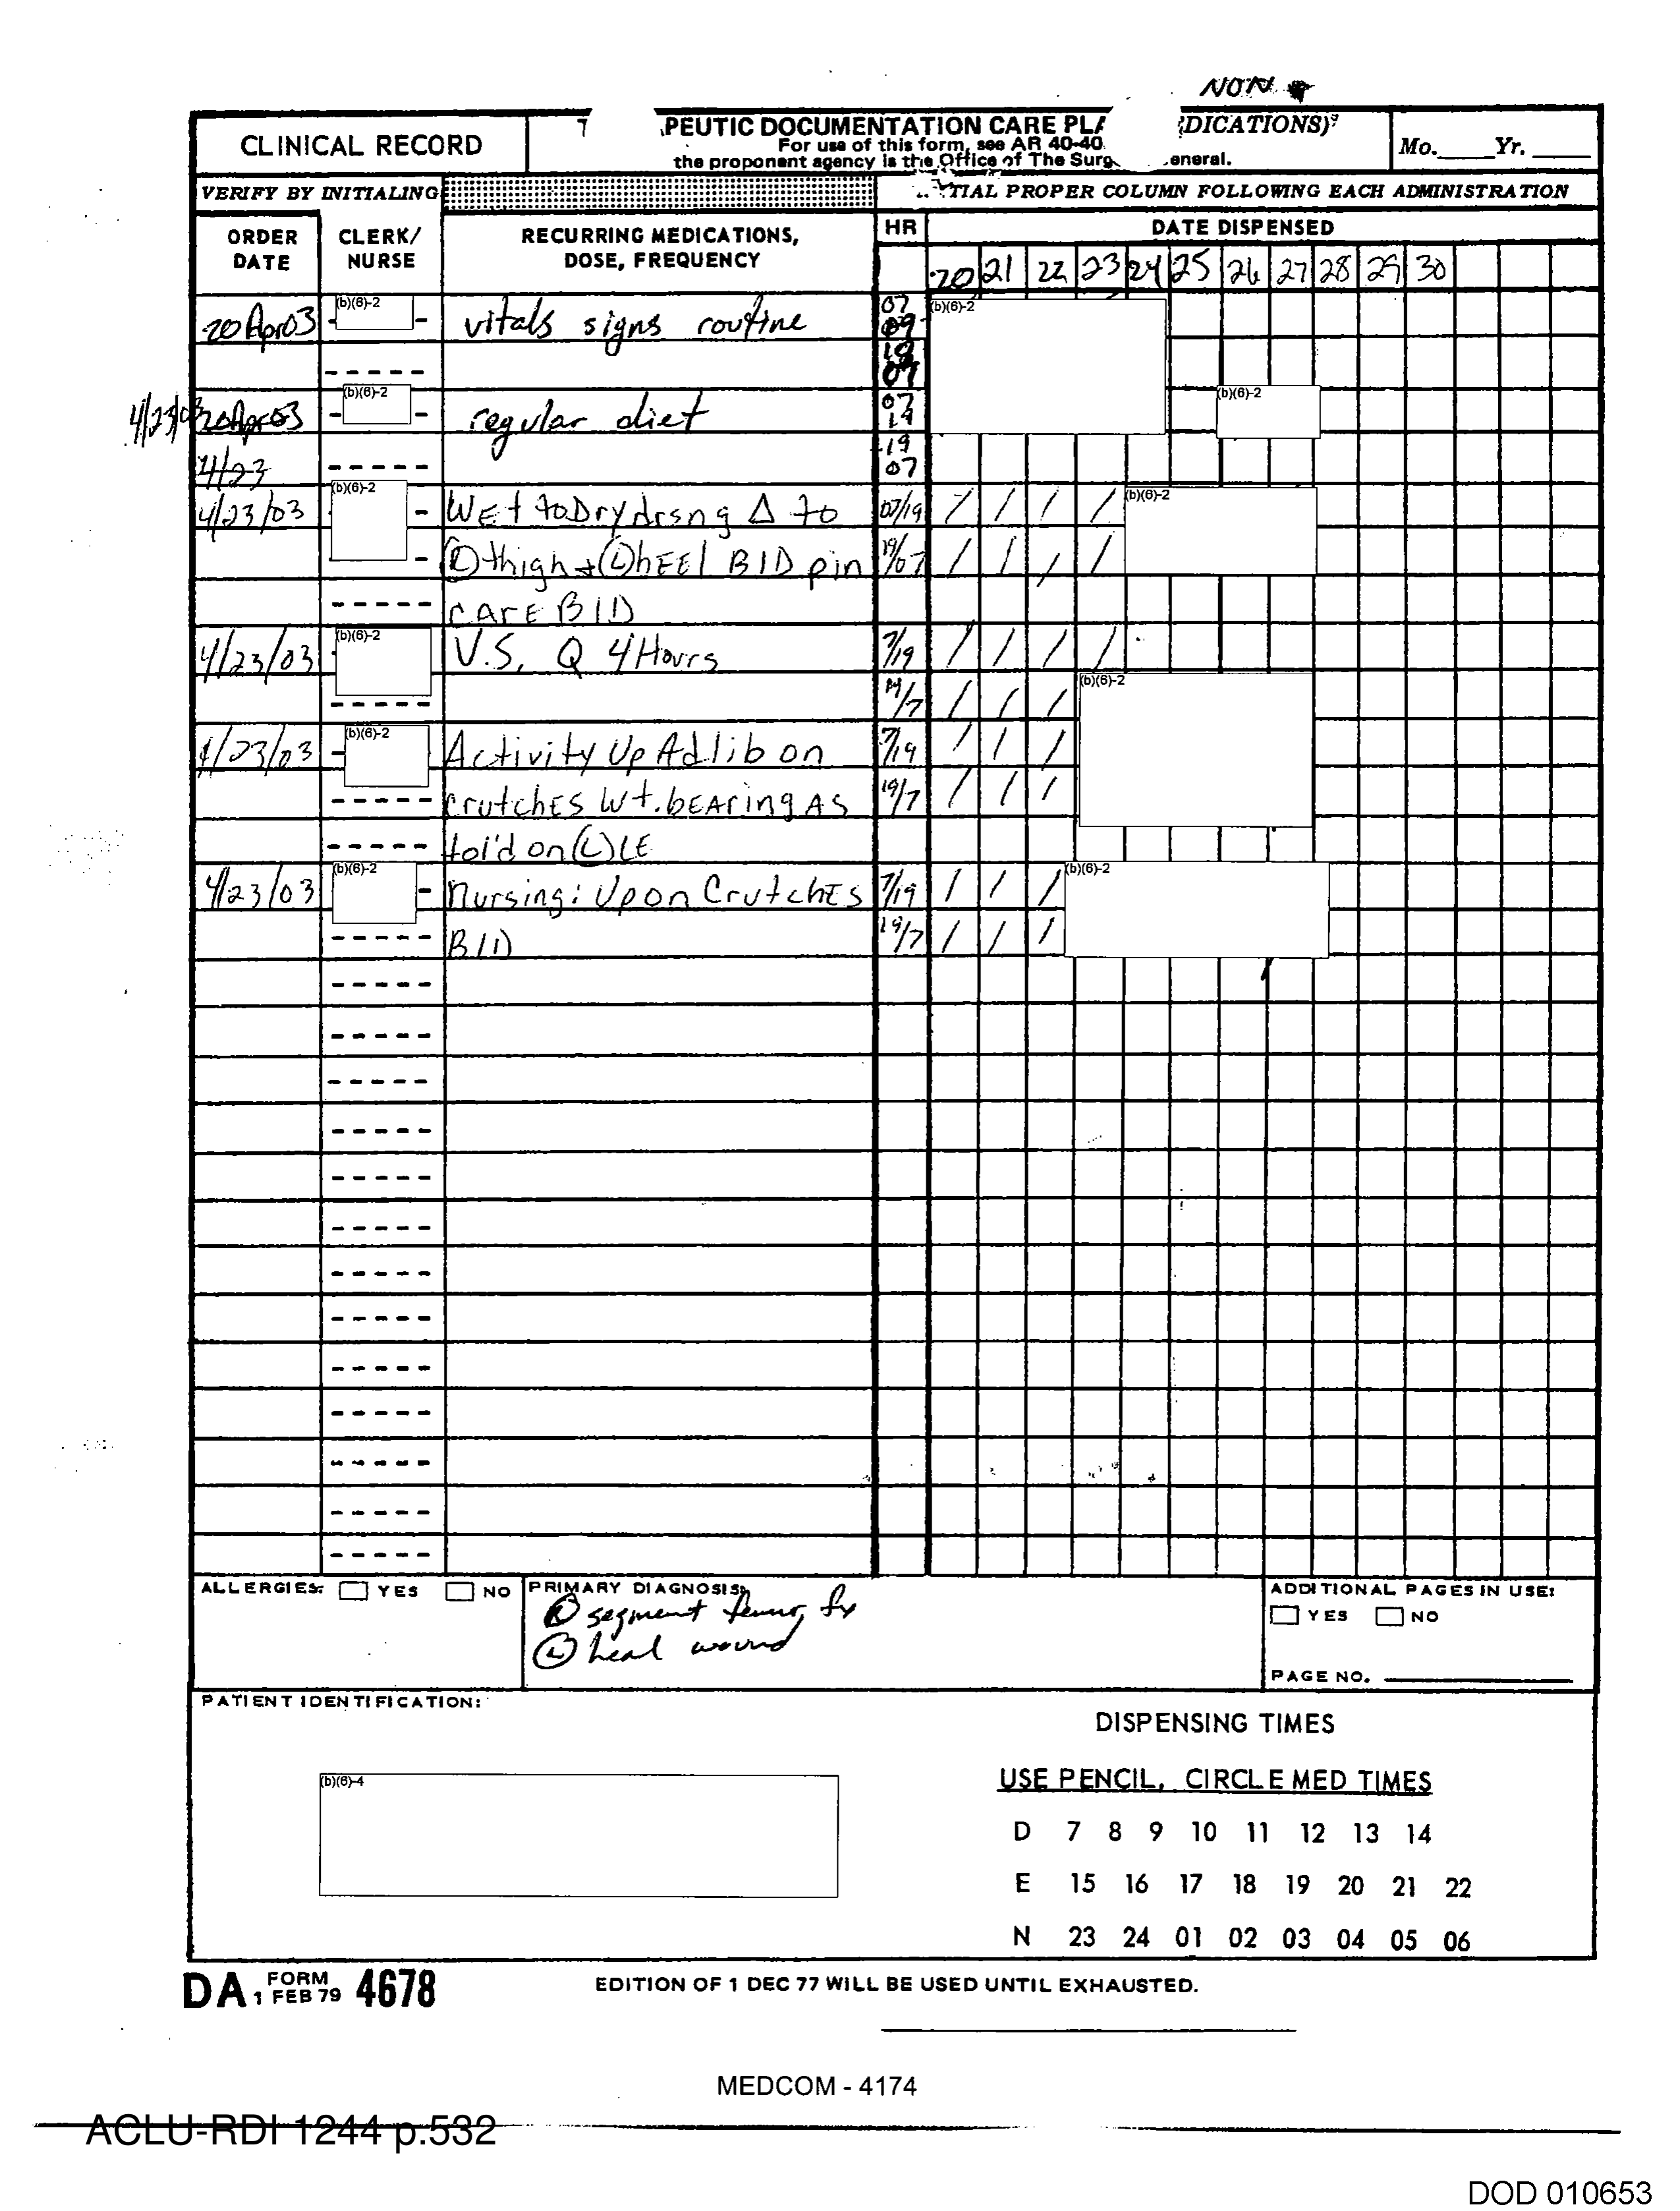 NON
CLINICAL RECORD
PEUTIC DOCUMENTATION CARE PLA
DICATIONS)
For use of this form, see AR 40-40
the proponent agency is the Office of The Surg eneral.
Mo. Yr.
VERIFY BY INITIALING
TIAL PROPER COLUMN FOLLOWING EACH ADMINISTRATION
ORDER DATE
CLERK/ NURSE
RECURRING MEDICATIONS, DOSE, FREQUENCY
HR
DATE DISPENSED
20 21 22 23 24 25 26 27 28 29 30
20 Apr 03 (b)(6)-2 vitals signs routine 07 (b)(6)-2
09
19
07
4/23/03 20Apr03 (b)(6)-2 regular diet 07 (b)(6)-2
19
19
4/23 07
4/23/03 (b)(6)-2 WEt toDry drsng Δ to 07/19 / / / / (b)(6)-2
thigh + (L) hEEl BID pin 19/07 / / / /
CArE BID
4/23/03 (b)(6)-2 V.S. Q 4 Hours 7/19 / / / /
19/7 / / / (b)(6)-2
4/23/03 (b)(6)-2 Activity Up Ad lib on 7/19 / / /
crutchEs Wt. bEAring AS 19/7 / / /
tol'd on (L) LE
4/23/03 (b)(6)-2 Nursing: Up on CrutchEs 7/19 / / / (b)(6)-2
BID 19/7 / / /
ALLERGIES: YES NO
PRIMARY DIAGNOSIS:
(R) segment femur fx
(L) heal wound
ADDITIONAL PAGES IN USE:
YES NO
PAGE NO.
PATIENT IDENTIFICATION:
(b)(6)-4
DISPENSING TIMES
USE PENCIL, CIRCLE MED TIMES
D 7 8 9 10 11 12 13 14
E 15 16 17 18 19 20 21 22
N 23 24 01 02 03 04 05 06
DA FORM 1 FEB 79 4678
EDITION OF 1 DEC 77 WILL BE USED UNTIL EXHAUSTED.
MEDCOM - 4174
ACLU-RDI 1244 p.532
DOD 010653